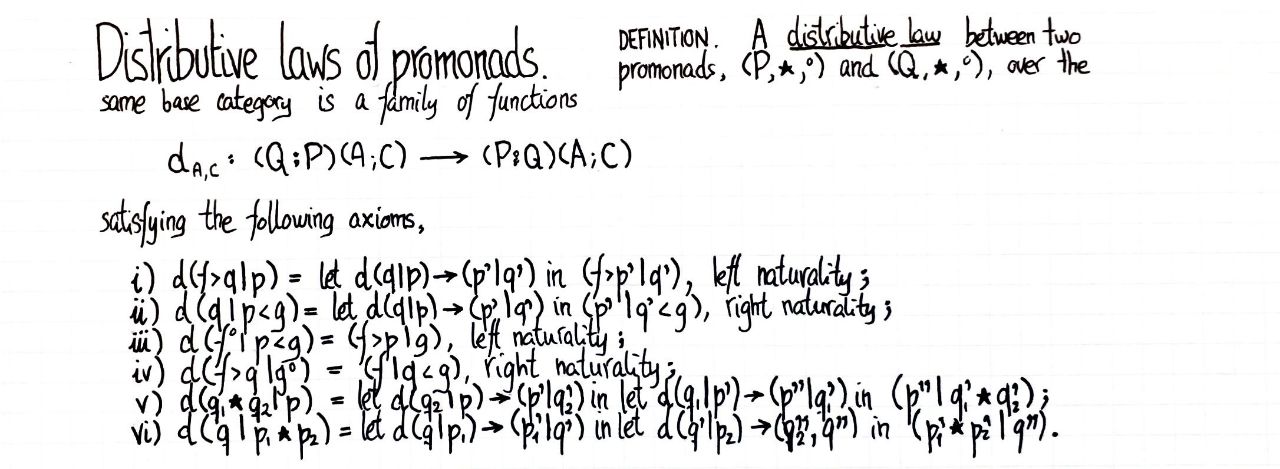 Distributive laws of promonads.
DEFINITION. A distributive law between two
promonads, (P,★,°) and (Q,★,°), over the
same base category is a family of functions
d_{A,C} : (Q⨟P)(A;C) ⟶ (P⨟Q)(A;C)
satisfying the following axioms,
i) d(f>q|p) = let d(q|p)→(p'|q') in (f>p'|q'), left naturality;
ii) d(q|p<g) = let d(q|p)→(p'|q') in (p'|q'<g), right naturality;
iii) d(f°|p<g) = (f>p|g), left naturality;
iv) d(f>q|g°) = (f|q<g), right naturality;
v) d(q₁★q₂|p) = let d(q₂|p)→(p'|q₂') in let d(q₁|p')→(p''|q₁') in (p''|q₁'★q₂');
vi) d(q|p₁★p₂) = let d(q|p₁)→(p₁'|q') in let d(q'|p₂)→(q₂'',q'') in (p₁'★p₂'|q'').